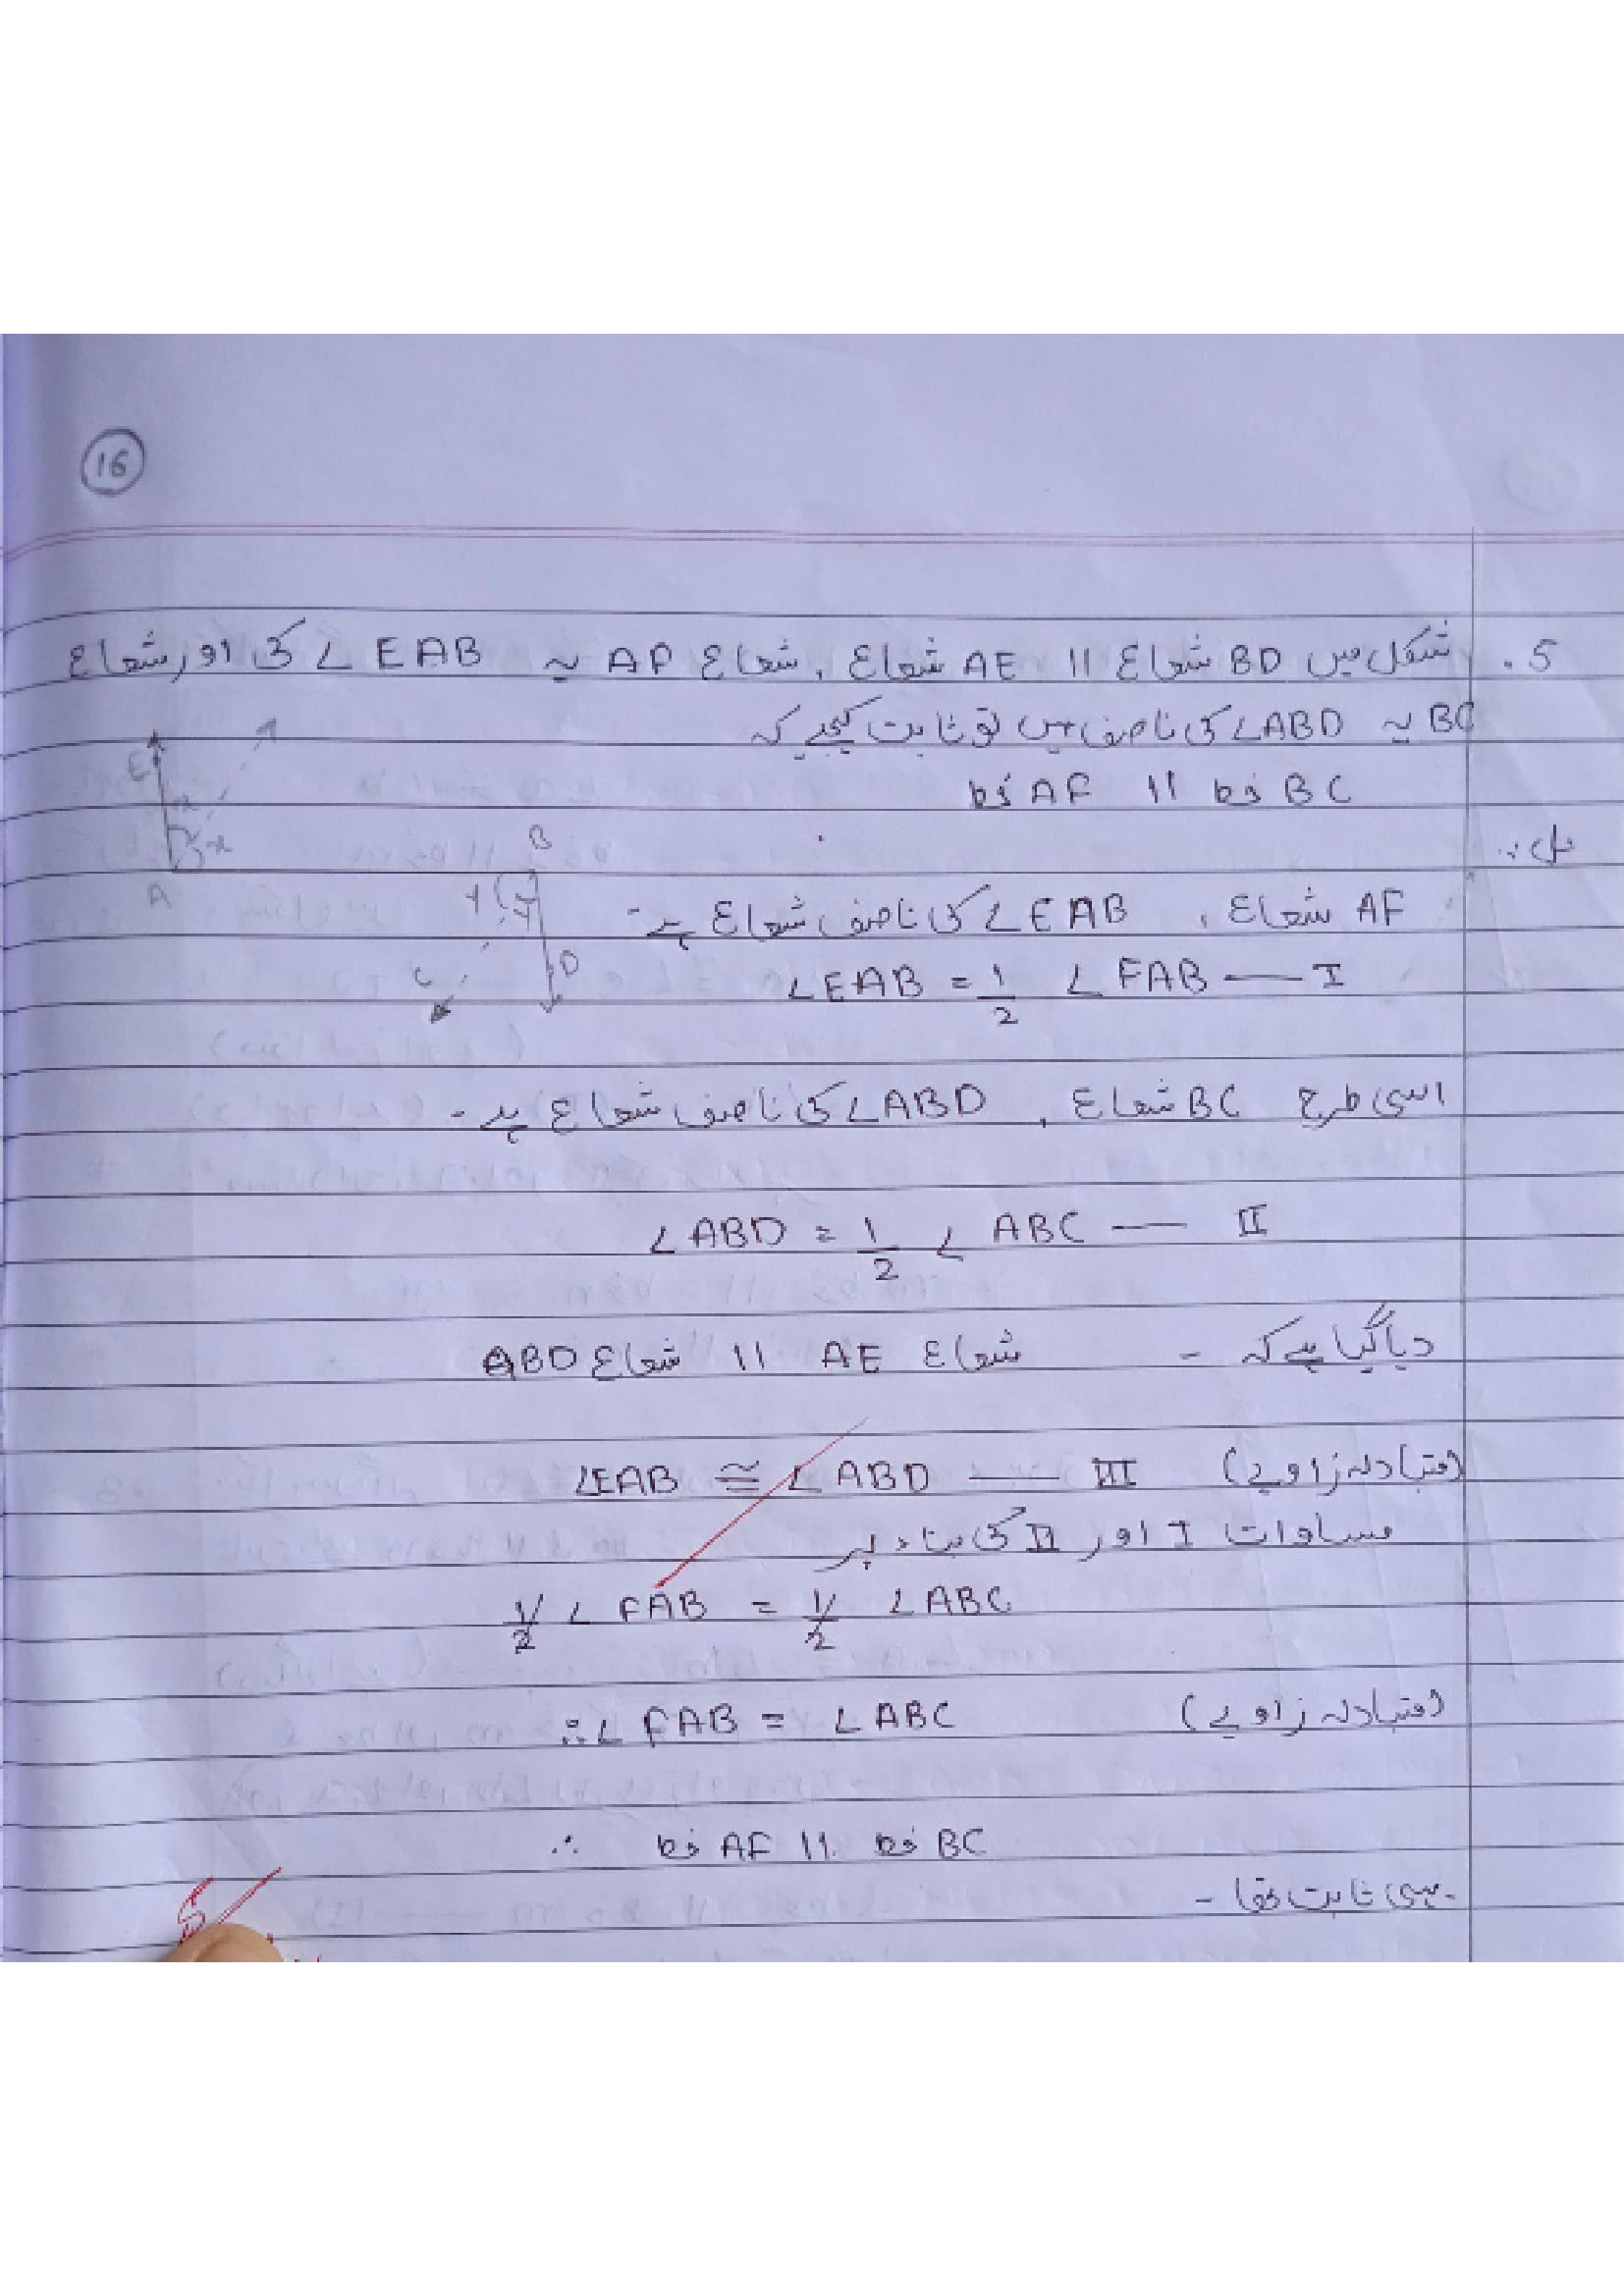 16
5. شکل میں BD شعاع || AE شعاع ، شعاع AP یہ ∠EAB کی اور شعاع
BC یہ ∠ABD کی ناصف ہیں تو ثابت کیجیے کہ
BC خط || AF خط
E
x
x
A
B
y
y
C
D
حل :
AF شعاع ، ∠EAB کی ناصف شعاع ہے۔
∠EAB = 1/2 ∠FAB — I
اسی طرح BC شعاع ، ∠ABD کی ناصف شعاع ہے۔
∠ABD = 1/2 ∠ABC — II
دیا گیا ہے کہ - شعاع AE || شعاع ABD
∠EAB ≅ ∠ABD — III (متبادلہ زاویے)
مساوات I اور II کی بناء پر
1/2 ∠FAB = 1/2 ∠ABC
∴ ∠FAB = ∠ABC (متبادلہ زاویے)
∴ خط AF || خط BC
یہی ثابت تھا -